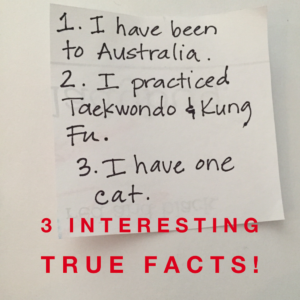 1. I have been
to Australia.
2. I practiced
Taekwondo & Kung
Fu.
3. I have one
cat.
3 INTERESTING
TRUE FACTS!